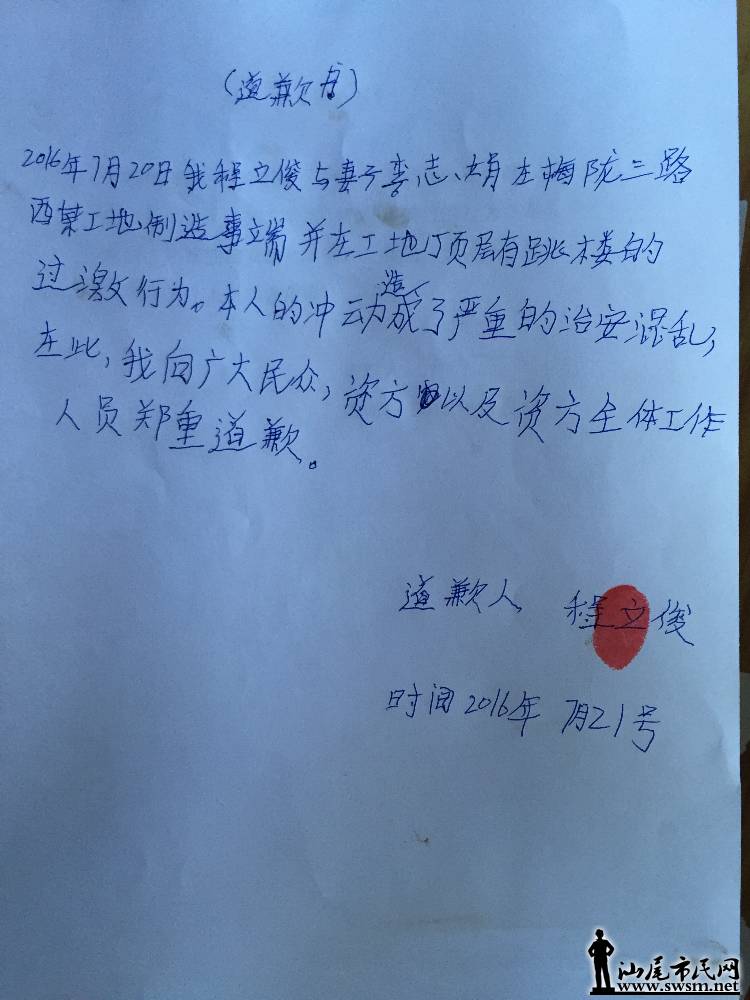 （道歉书）
2016年7月20日我程立俊与妻子李志娟在梅陇三路
西某工地制造事端并在工地顶层有跳楼的
过激行为。本人的冲动造成了严重的治安混乱，
在此，我向广大民众，资方以及资方全体工作
人员郑重道歉。
道歉人 程立俊
时间2016年 7月21号
汕尾市民网
www.swsm.net